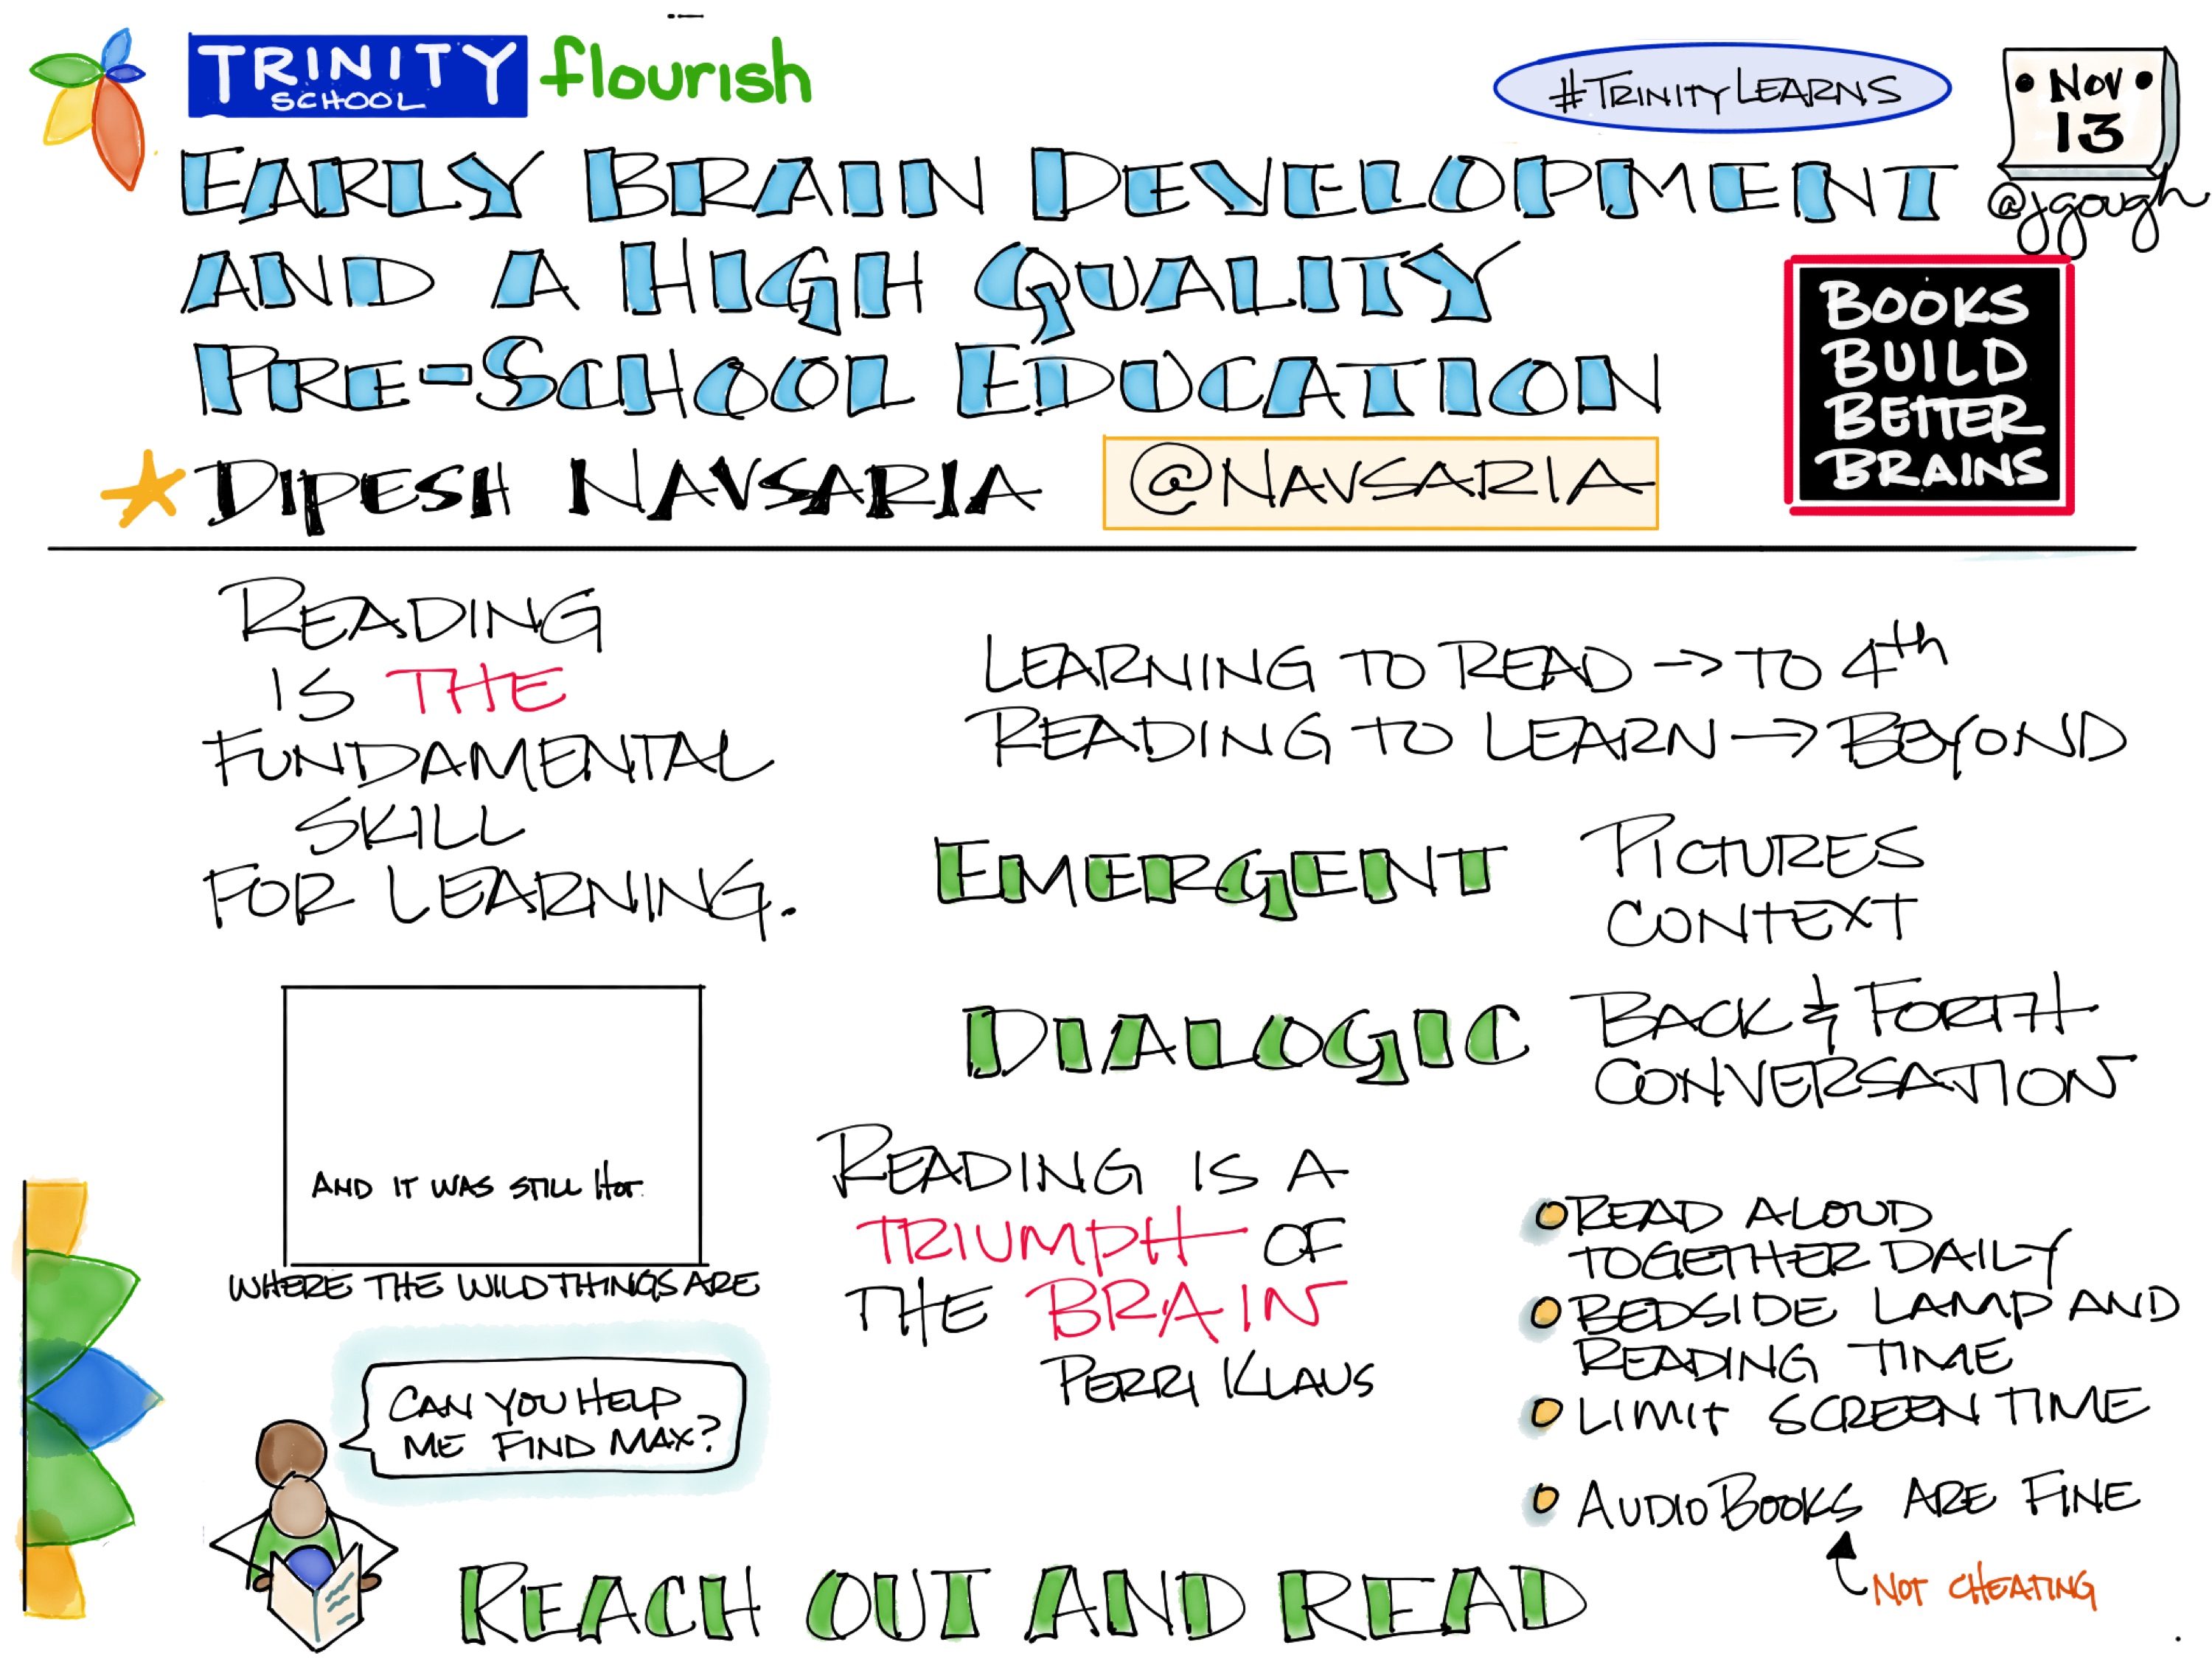 TRINITY
SCHOOL
flourish
#TRINITYLEARNS
NOV
13
@jgough
EARLY BRAIN DEVELOPMENT
AND A HIGH QUALITY
PRE-SCHOOL EDUCATION
DIPESH NAVSARIA @NAVSARIA
BOOKS
BUILD
BETTER
BRAINS
READING
IS THE
FUNDAMENTAL
SKILL
FOR LEARNING.
LEARNING TO READ → TO 4th
READING TO LEARN → BEYOND
EMERGENT
PICTURES
CONTEXT
DIALOGIC
BACK & FORTH
CONVERSATION
AND IT WAS STILL HOT.
WHERE THE WILD THINGS ARE
READING IS A
TRIUMPH OF
THE BRAIN
PERRI KLAUS
CAN YOU HELP
ME FIND MAX?
READ ALOUD
TOGETHER DAILY
BEDSIDE LAMP AND
READING TIME
LIMIT SCREEN TIME
AUDIO BOOKS ARE FINE
NOT CHEATING
REACH OUT AND READ